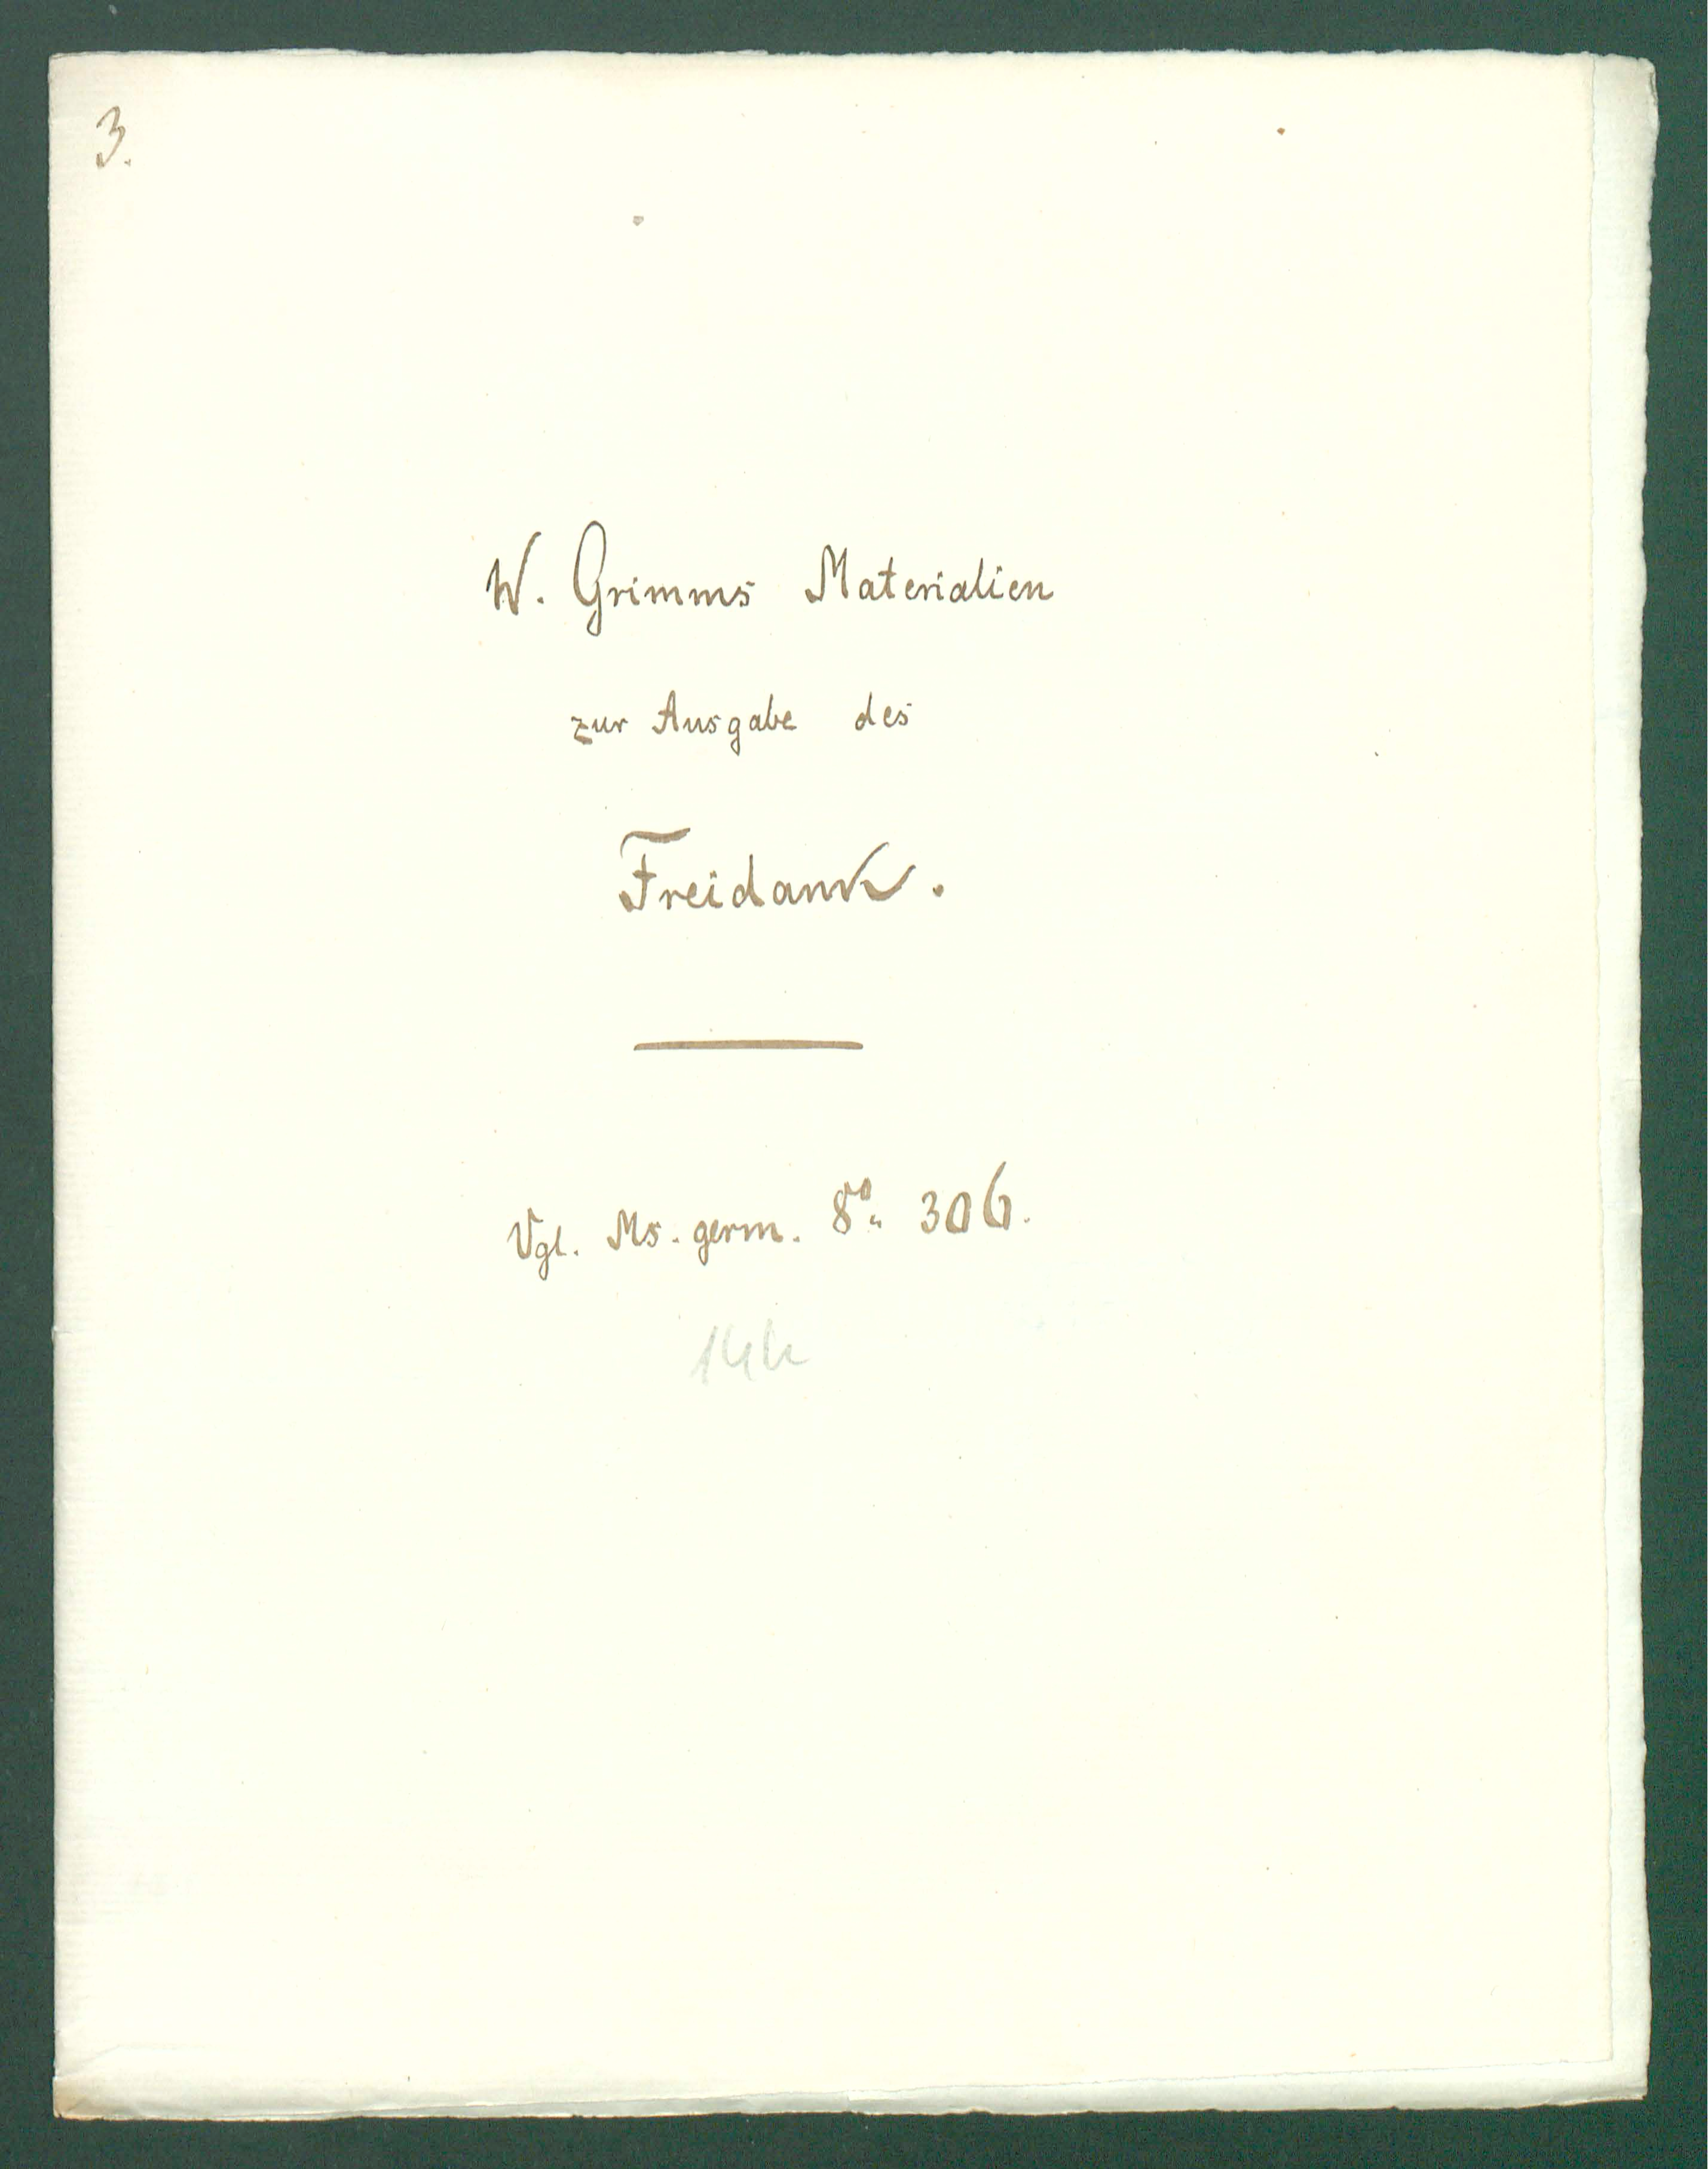 3.
W. Grimms Materialien
zur Ausgabe des
Freidank.
Vgl. Ms. germ. 8°. 306.